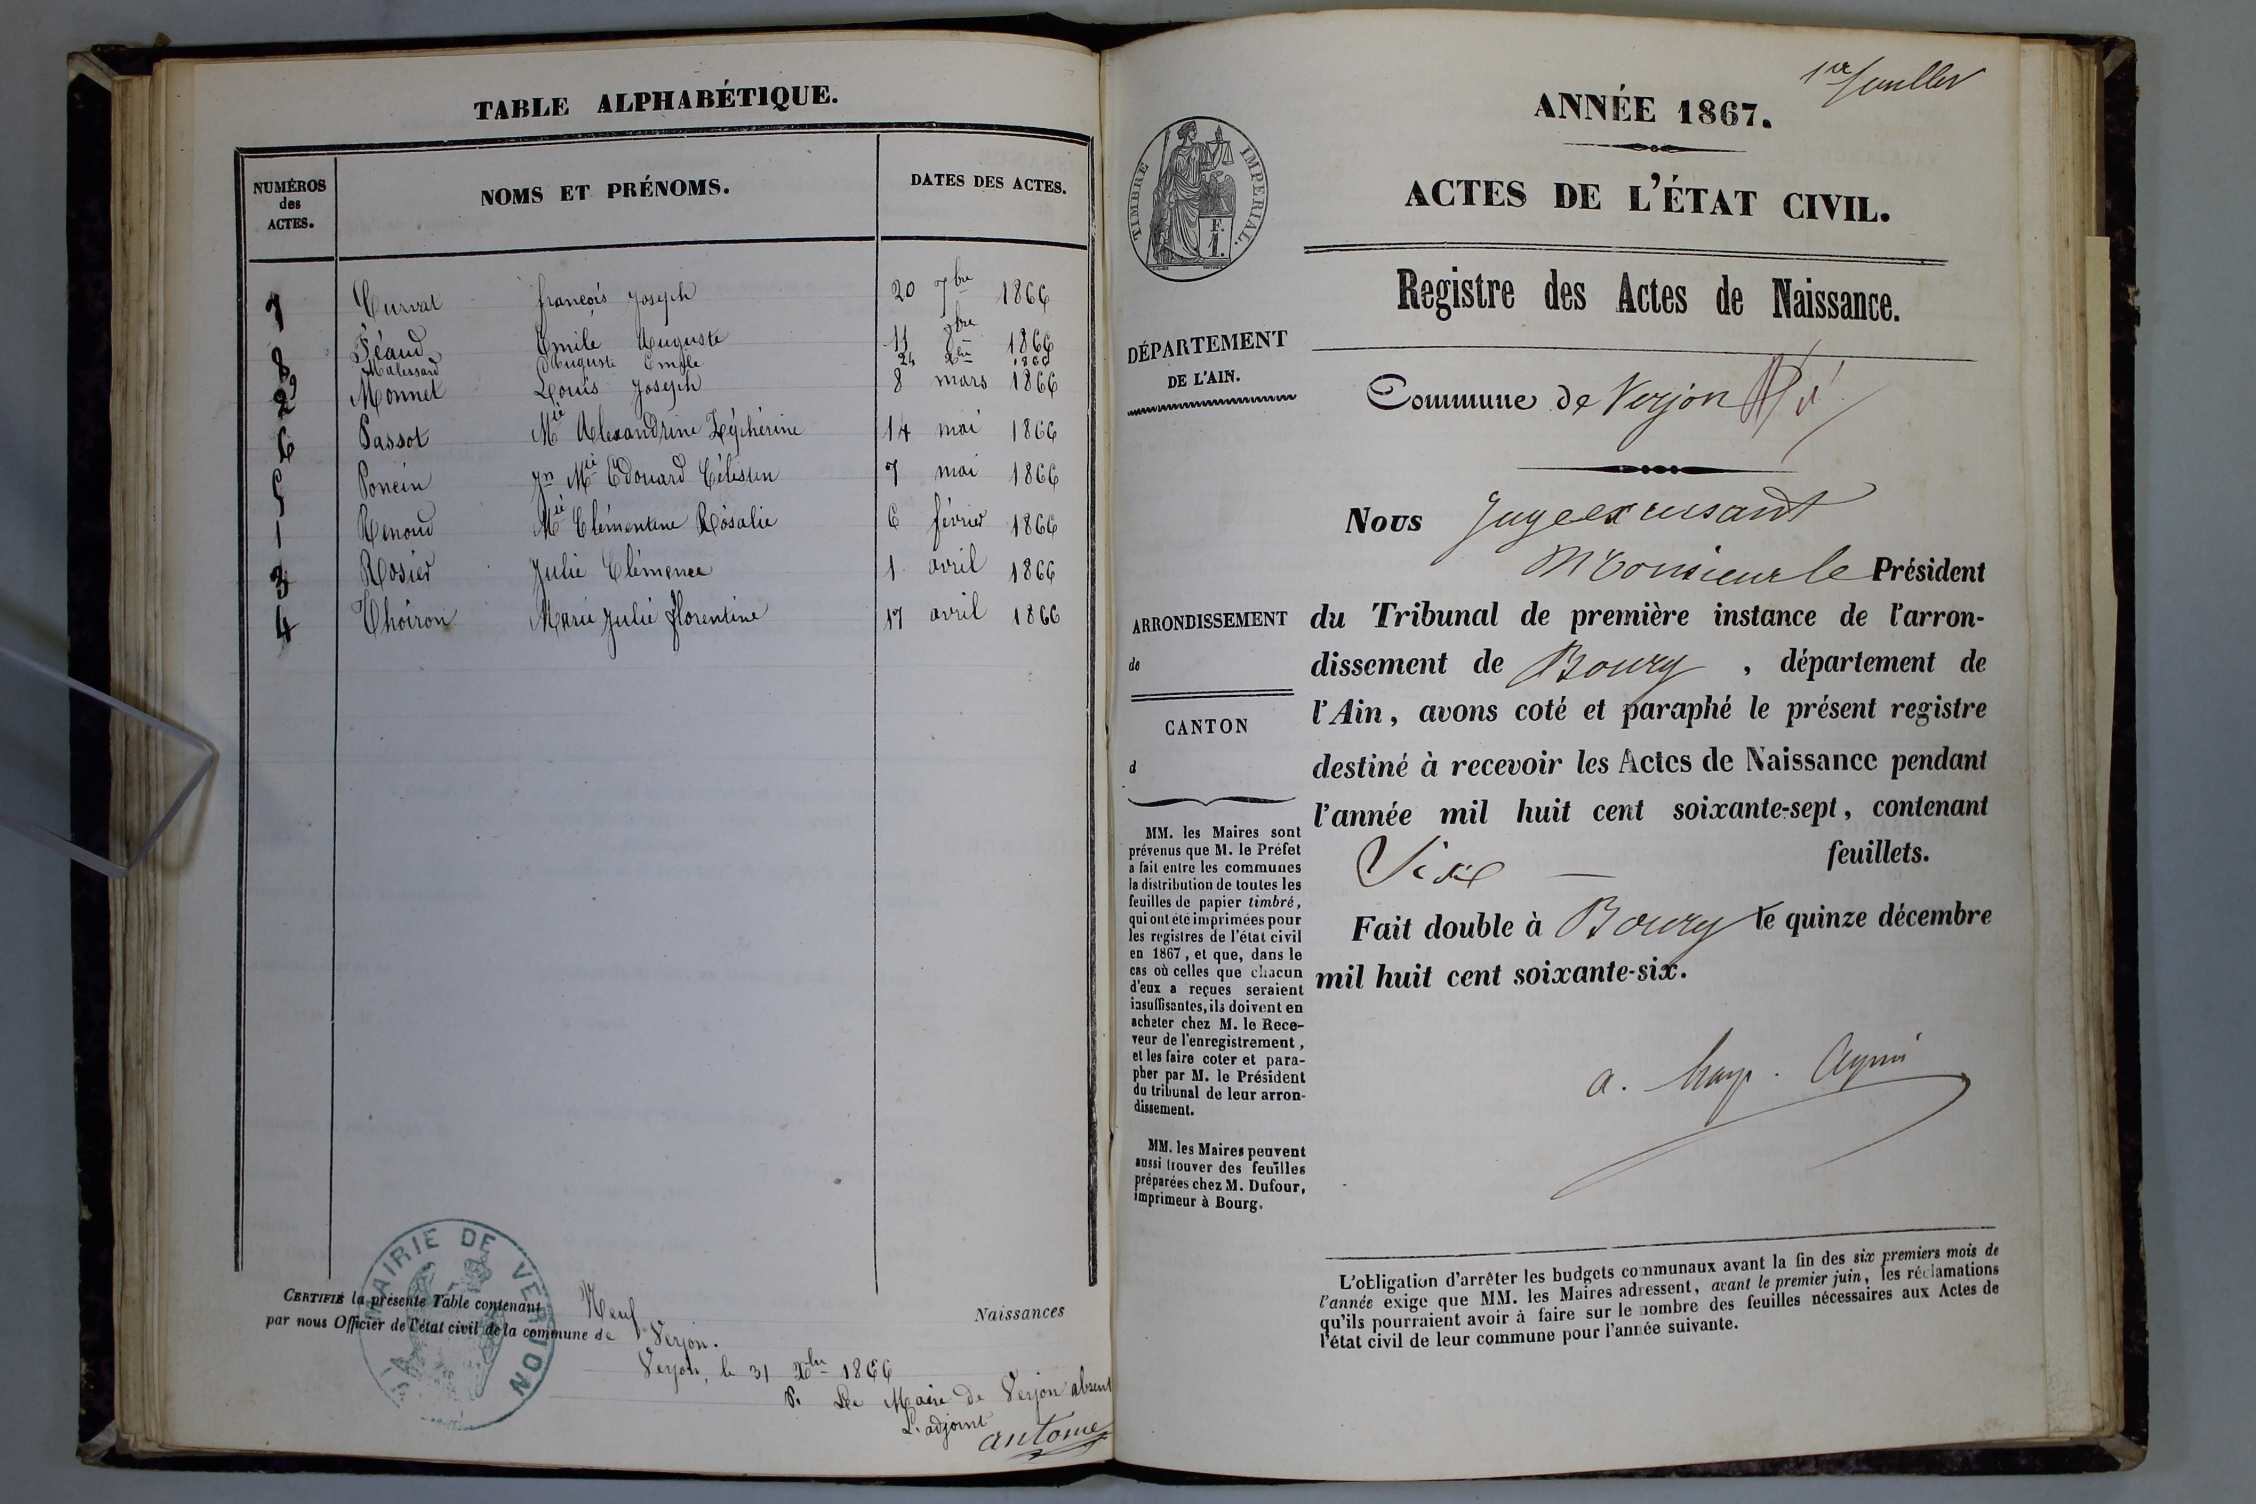 TABLE ALPHABÉTIQUE.
NUMÉROS des ACTES.
NOMS ET PRÉNOMS.
DATES DES ACTES.
7 Curvat françois Joseph 20 7bre 1866
8 Féaud Emile Auguste 11 8bre 1866
9 Malessard Auguste Emile 24 Xbre 1866
2 Monnet Louis Joseph 8 mars 1866
6 Passot Mie Alexandrine Zéphérine 14 mai 1866
5 Poncin Jn Mie Edouard Célestin 7 mai 1866
1 Renoud Mie Clémentine Rosalie 6 février 1866
3 Rosier Julie Clémence 1 avril 1866
4 Thoiron Marie Julie florentine 17 avril 1866
CERTIFIÉ la présente Table contenant Neuf Naissances
par nous Officier de l'état civil de la commune de Verjon.
Verjon, le 31 Xbre 1866
P. Le Maire de Verjon absent
L'adjoint
antome
MAIRIE DE VERJON
AIN
1er feuillet
ANNÉE 1867.
ACTES DE L'ÉTAT CIVIL.
TIMBRE IMPERIAL.
F.
1.
Registre des Actes de Naissance.
DÉPARTEMENT
DE L'AIN.
Commune de Verjon
Nous Juge excusant
Monsieur le Président
ARRONDISSEMENT
de
du Tribunal de première instance de l'arron-
dissement de Bourg , département de
l'Ain, avons coté et paraphé le présent registre
destiné à recevoir les Actes de Naissance pendant
l'année mil huit cent soixante-sept, contenant
Six — feuillets.
Fait double à Bourg le quinze décembre
mil huit cent soixante-six.
CANTON
d
MM. les Maires sont
prévenus que M. le Préfet
a fait entre les communes
la distribution de toutes les
feuilles de papier timbré,
qui ont été imprimées pour
les registres de l'état civil
en 1867, et que, dans le
cas où celles que chacun
d'eux a reçues seraient
insuffisantes, ils doivent en
acheter chez M. le Rece-
veur de l'enregistrement,
et les faire coter et para-
pher par M. le Président
du tribunal de leur arron-
dissement.
MM. les Maires peuvent
aussi trouver des feuilles
préparées chez M. Dufour,
imprimeur à Bourg.
L'obligation d'arrêter les budgets communaux avant la fin des six premiers mois de
l'année exige que MM. les Maires adressent, avant le premier juin, les réclamations
qu'ils pourraient avoir à faire sur le nombre des feuilles nécessaires aux Actes de
l'état civil de leur commune pour l'année suivante.